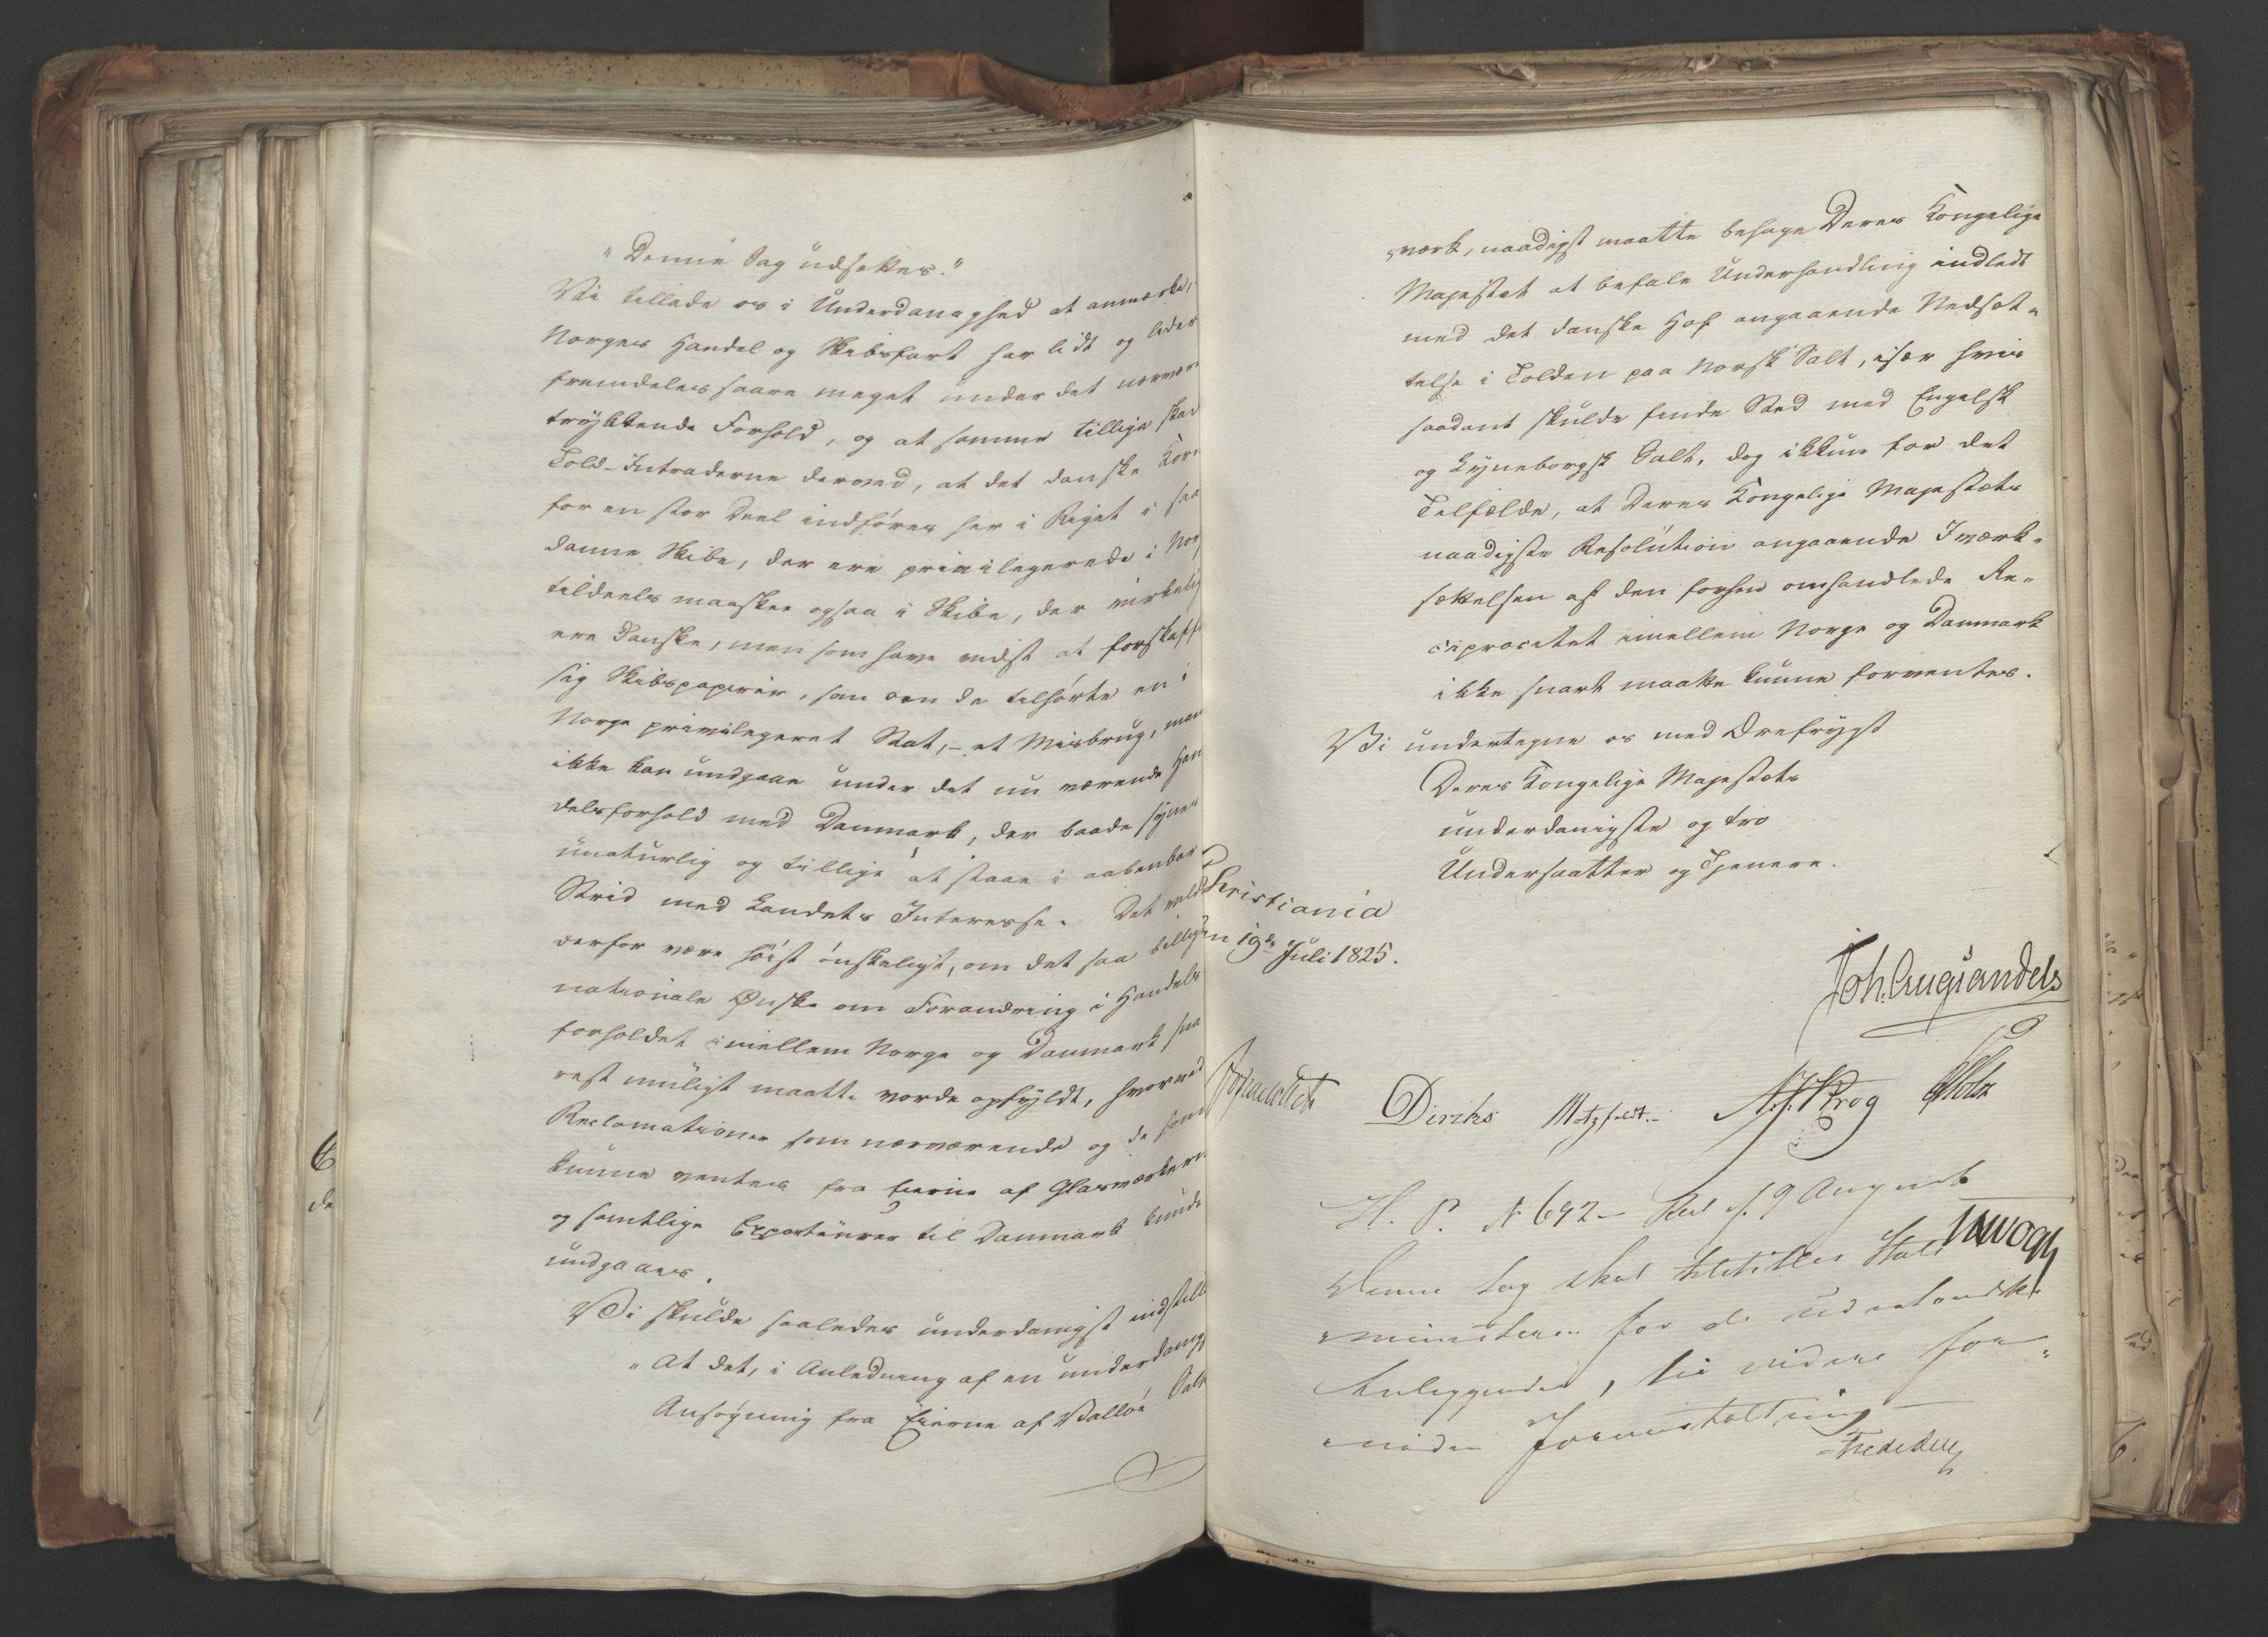 "Denne Sag udsættes."
Vi tillade os i Underdanighed at anmærke,
Norges Handel og Skibsfart har lidt og lider
fremdeles saare meget under det nærvær
trykkende Forhold, og at samme tillige skad
Told-Intraderne derved, at det danske Korn
for en stor Deel indføres her i Riget i saa
danne Skibe, der ere privilegerede i Nor
tildeels maaskee ogsaa i Skibe, der virkelig
ere danske, men som have vidst at forskaffe
sig Skibspapirer, som om de tilhørte en i
Norge privilegeret Stat, - et Misbrug, man
ikke kan undgaae under det nu værende Han
delsforhold med Danmark, der baade synes
unaturlig og tillige at staae i aabenbar
Strid med Landets Interesse. Det vild
derfor være høist ønskeligt, om det saa billige
nationale Ønske om Forandring i Handels
forholdet imellem Norge og Danmark sna
rest muligt maatte vorde opfyldt, hvorved
Reclamationer som nærværende og de som
kunne ventes fra Eierne af Glasværkerne
og samtlige Exporteurer til Danmark kunde
undgaaes.
Vi skulde saaledes underdanigst indstille
"At det, i Anledning af en underdanig
Ansøgning fra Eierne af Valløe Salt
værk, naadigst maatte behage Deres Kongelige
Majestæt at befale Underhandling indledt
med det danske Hof angaaende Nedsæt-
telse i Tolden paa Norsk Salt, især hvis
saadant skulde finde Sted med Engelsk
og Lyneborgsk Salt, dog ikkun for det
Tilfælde, at Deres Kongelige Majestæts
naadigste Resolution angaaende Iværk-
sættelsen af den forhen omhandlede Re-
ciprocitet imellem Norge og Danmark
ikke snart maatte kunne forventes.
Vi undertegne os med Ærefrygt
Deres Kongelige Majestæts
underdanigste og tro
Undersaatter og Tjenere.
Christiania
den 19de Juli 1825.
Joh. Aug Sandels
Diriks Motzfeldt. Krog Holst
H. P. N 692 - Red. 9 August
Denne Sag skal tilstilles Stats
ministeren for de udenlandske
Anliggender, til videre for-
nøden Foranstaltning